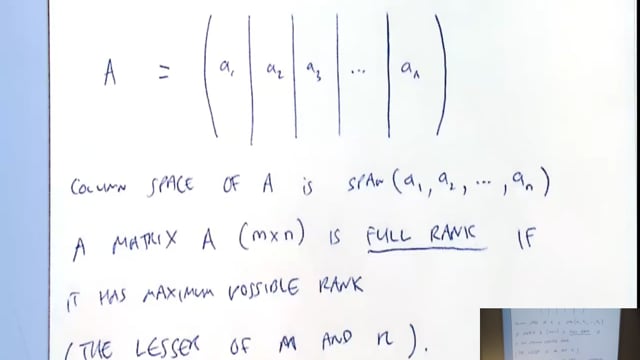 A = ( a₁ | a₂ | a₃ | ... | aₙ )
COLUMN SPACE OF A IS SPAN(a₁, a₂, ..., aₙ)
A MATRIX A (m×n) IS FULL RANK IF
IT HAS MAXIMUM POSSIBLE RANK
(THE LESSER OF M AND n).